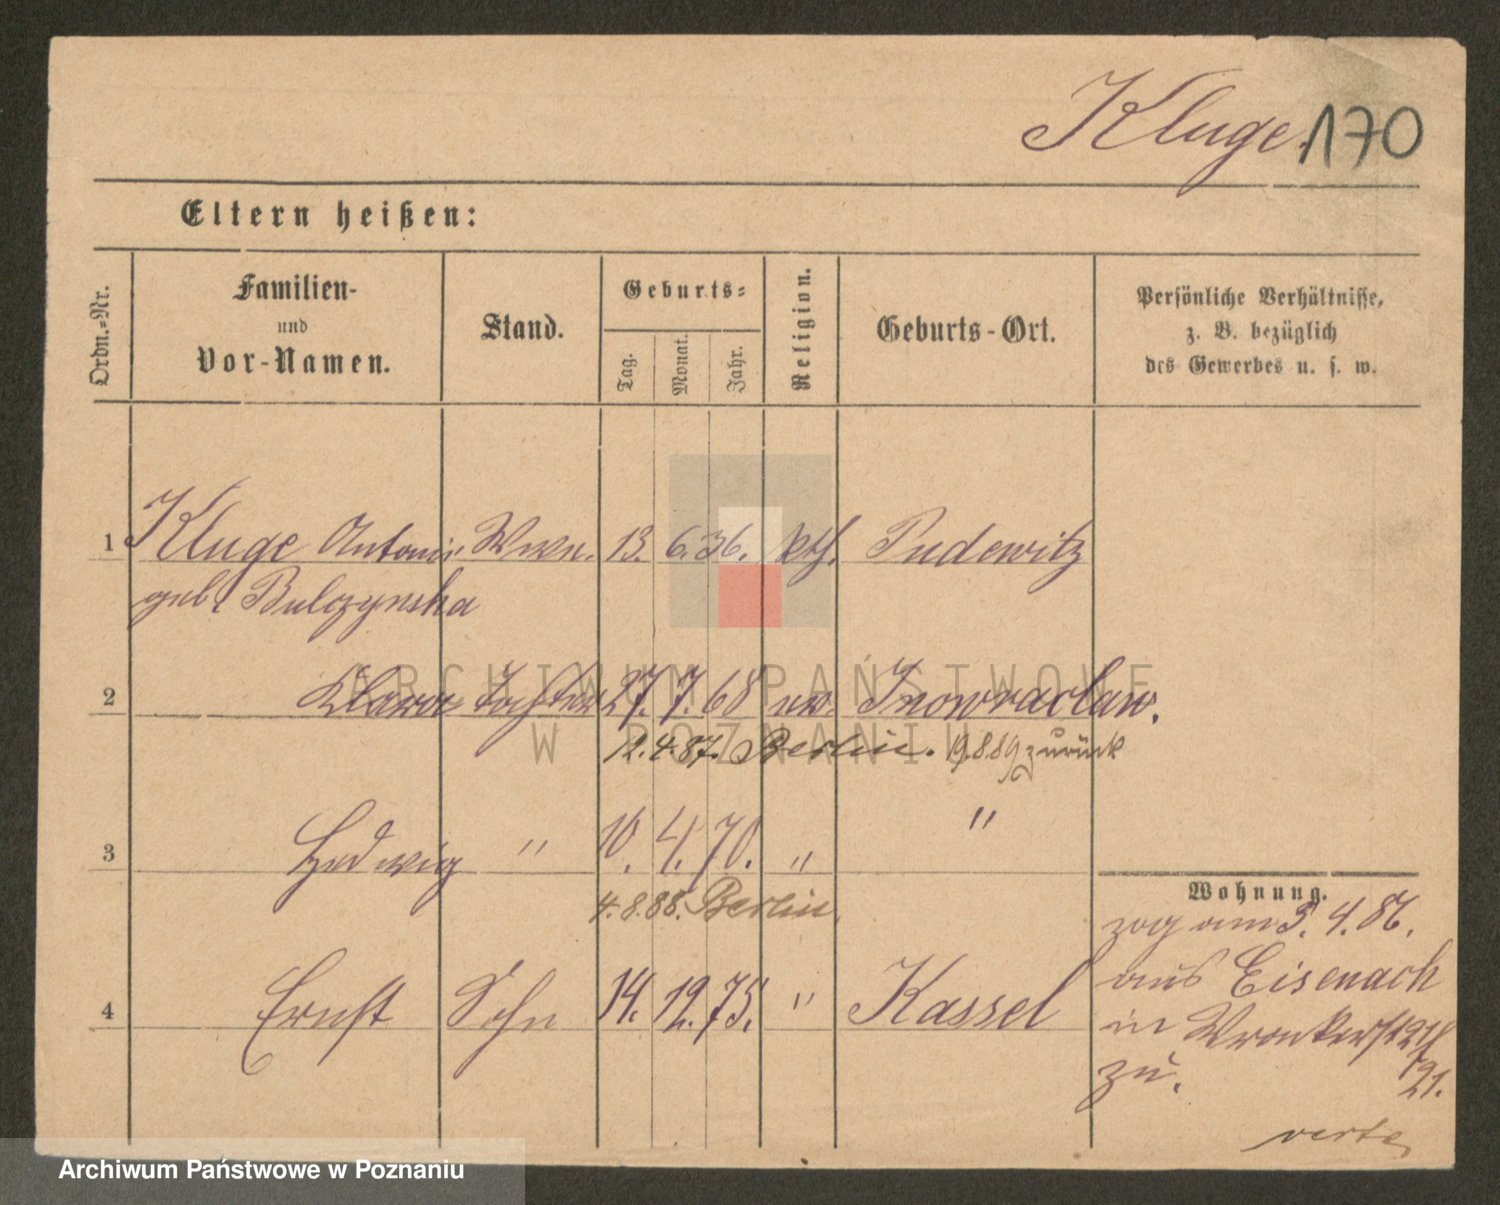 Kluge. 170
Eltern heißen:
Ordn.-Nr.
Familien-
und
Vor-Namen.
Stand.
Geburts-
Tag.
Monat.
Jahr.
Religion.
Geburts-Ort.
Persönliche Verhältnisse,
z. B. bezüglich
des Gewerbes u. s. w.
1 Kluge Antonie Wwe. 13. 6. 36. kth. Pudewitz
geb. Bulczynska
2 Klara Tochter 27. 7. 68 ev. Inowraclaw.
12.4.87. Berlin. 19.8.89 zurück
3 Hedwig " 10. 4. 70. " "
4.8.88. Berlin
4 Ernst Sohn 14. 12. 75. " Kassel
Wohnung.
zog am 3. 4. 86.
aus Eisenach
in Wronkerst
zu. 21.
verte
ARCHIWUM PAŃSTWOWE
W POZNANIU
Archiwum Państwowe w Poznaniu